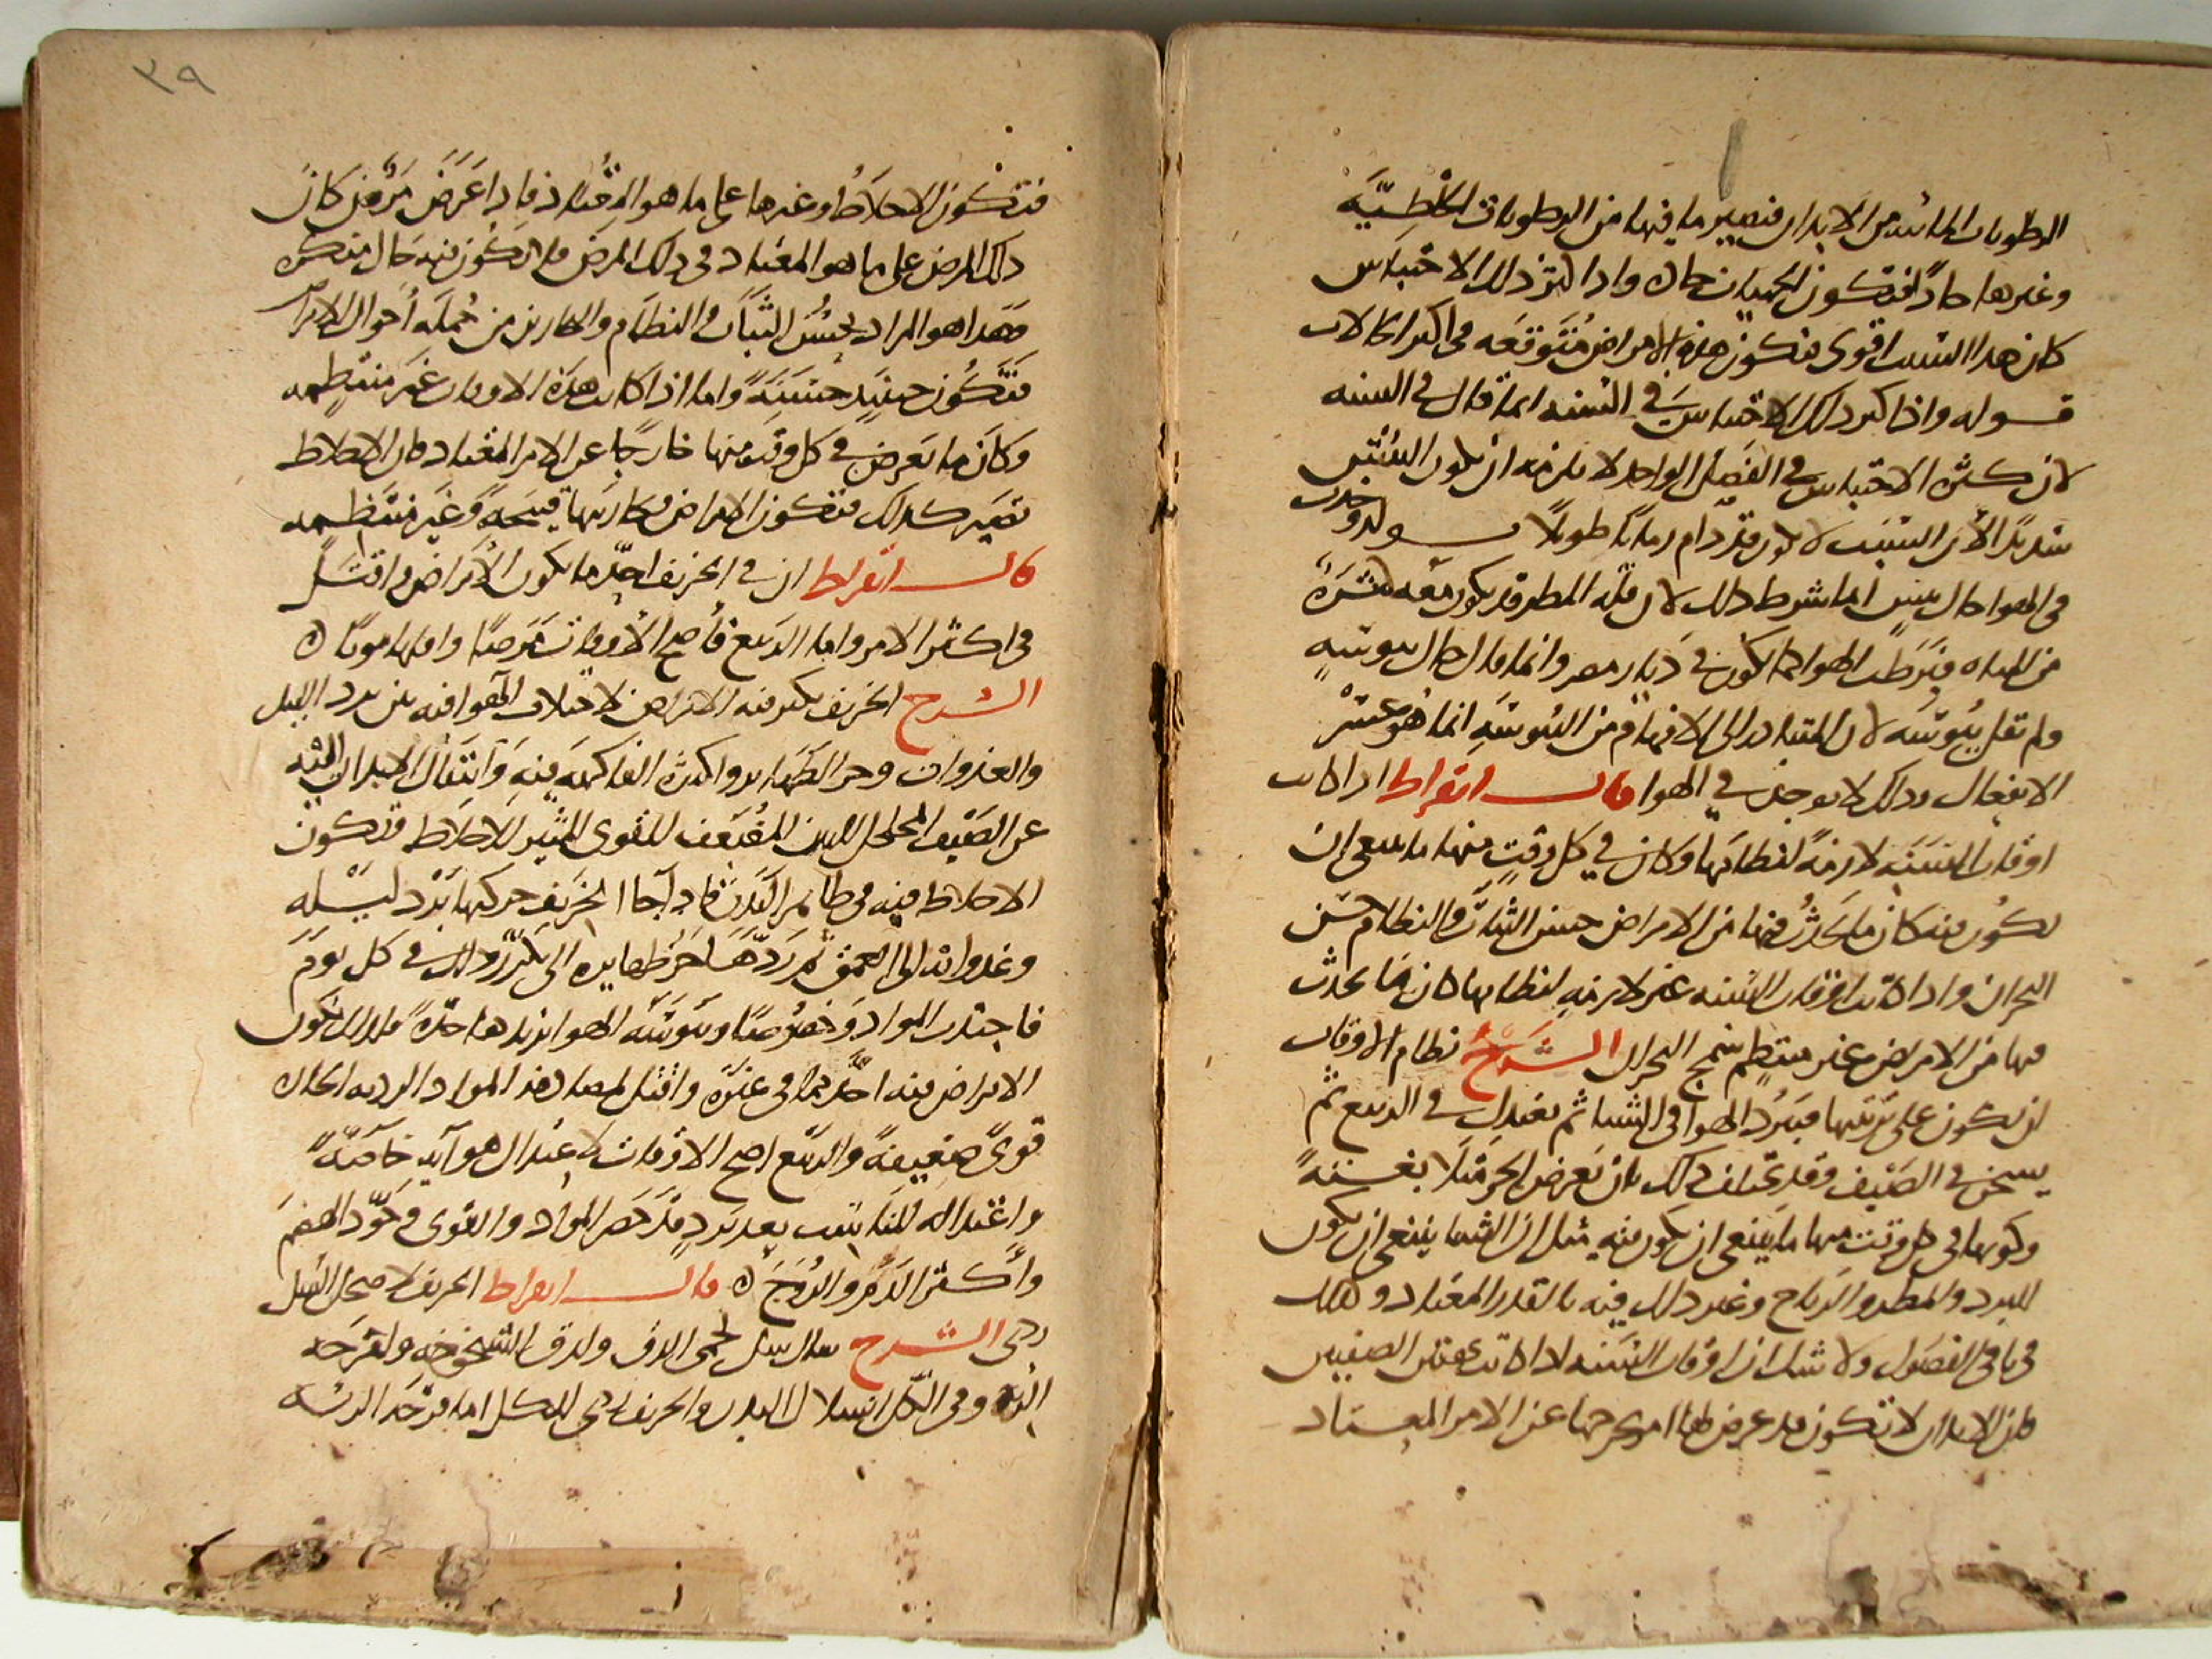 الرطوبات المائيه من الابدان فيصير ما فيها من الرطوبات الخلطيّة
وغيرها حادًا فتكون الحميات حاده واذا كثر ذلك الاحتباس
كان هذا السبب اقوى فتكون هذه الامراض مُتَوقعَه في اكثر الحالات
قوله واذا كثر ذلك الاحتباس في السنه انما قال في السنه
لان كثرة الاحتباس في الفصل الواحد لا يلزمه ان يكون
شديدًا لأن السبب لا يكون قد دام زمانًا طويلًا قوله وحدث
في الهوا حال يبس انما شرط ذلك لان قلة المطر قد يكون معه كثرة
من المياه فيرطب الهوا كما يكون في ديار مصر وانما قال حال يبوسةٍ
ولم يقل يبوسَه لان المتبادر الى الافهام من اليبوسَهِ انما هو عسْر
الانفعال وذلك لا يوجد في الهوا قال ابقراط اذا كانت
اوقات السنَهِ لازمةً لنظامَها وكان في كل وقتٍ منها ما ينبغي ان
يكون فيه كان ما يحدُثُ فيها من الامراض حسن الثبات والنظام حسَن
البحران واذا كانت اوقات السَنه غير لازمهٍ لنظامها كان ما يحدث
فيها من الامراض غير منتظم سمج البحران الشرح نظام الاوقات
ان تكون على ترتيبها فيَبرُد الهوا في الشتا ثم يعتدل في الربيع ثم
يسخن في الصَيف وقد يختلف ذلك بان يَعرض الحر مَثلًا بغتةً
وكونها في كل وقت منها ما ينبغي ان يكون فيه مثل ان الشتا ينبغي ان يكون
البرد والمطر والرياح وغير ذلك فيه بالقدر المعتاد وكذلك
في باقي الفصول ولا شك ان اوقات السَنه اذا كانت
فان الابدان لا تكون قد عرض لها امر يخرجها عن الامر المعتاد
٣٩
فتكون الاخلاطُ وغيرها على ما هو المعتاد فاذا عَرَضَ مَرَضٌ كانَ
ذلك المرض على ما هو المعتاد في ذلك المرض فلا تكون فيه حَال منكره
وهذا هو المراد بحُسْن الثَبَات والنظام والبحارين من جُملَه أحوال الامراض
فتَكُون حينيذ حسَنَةً واما اذا كانت هَذه الاوقات غَير منتظِمه
وكانَ ما يَعرض في كل وقت منها خارجًا عن الامر المعتاد فان الاخلاط
تصَير كذلك فتكون الامراض وبحارينها قبيحَةً وَغَير منتَظمه
قال ابقراط ان في الخريف احَدّ ما يكون الامراض واقتَلُ
في اكثر الامر واما الربيع فأصح الأوقات مَرَضًا واقلها موتًا ه
الشرح الخريف يكثر فيه الامراض لاختلاف الهوا فيه بين برد الليل
والغدوات وحر الظهاير ولكثرة الفاكهه فيه وانتقال الابدان اليه
عن الصَيف المحلحل للبدن المضعف للقوى المثير للاخلاط فتكون
الاخلاط فيه في ظاهر البَدن فاذا جا الخَريف حركها بَرْد ليْله
وغدواته الى العمق ثم رَدَّهَا حَر ظهايره الى وذلك في كل يوم
فاحتدت المواد وَخصُوصًا ويبوسَة الهوا يزيدها حدّةً فلذلك تكون
الامراض فيه احَدّ مما في غيره واقتل لمصادفة المواد الرديه الحاده
قوىً ضعيفةً والربيع اصح الاوقات لاعتدال هوآيه خاصّةً
واعتداله المناسب بعد بَردٍ قد حَصَر المواد والقوى وجَوَّد الهضمَ
واكثر الدَم والروح ه قال ابقراط الخريف لاصحاب السل
ردي الشرح يقال سل لحمى الدق ولدق الشيخوخه ولقرحه
الريه وفي الكل انسلال البدن والخريف ردي للكل اما قرحَة الريه